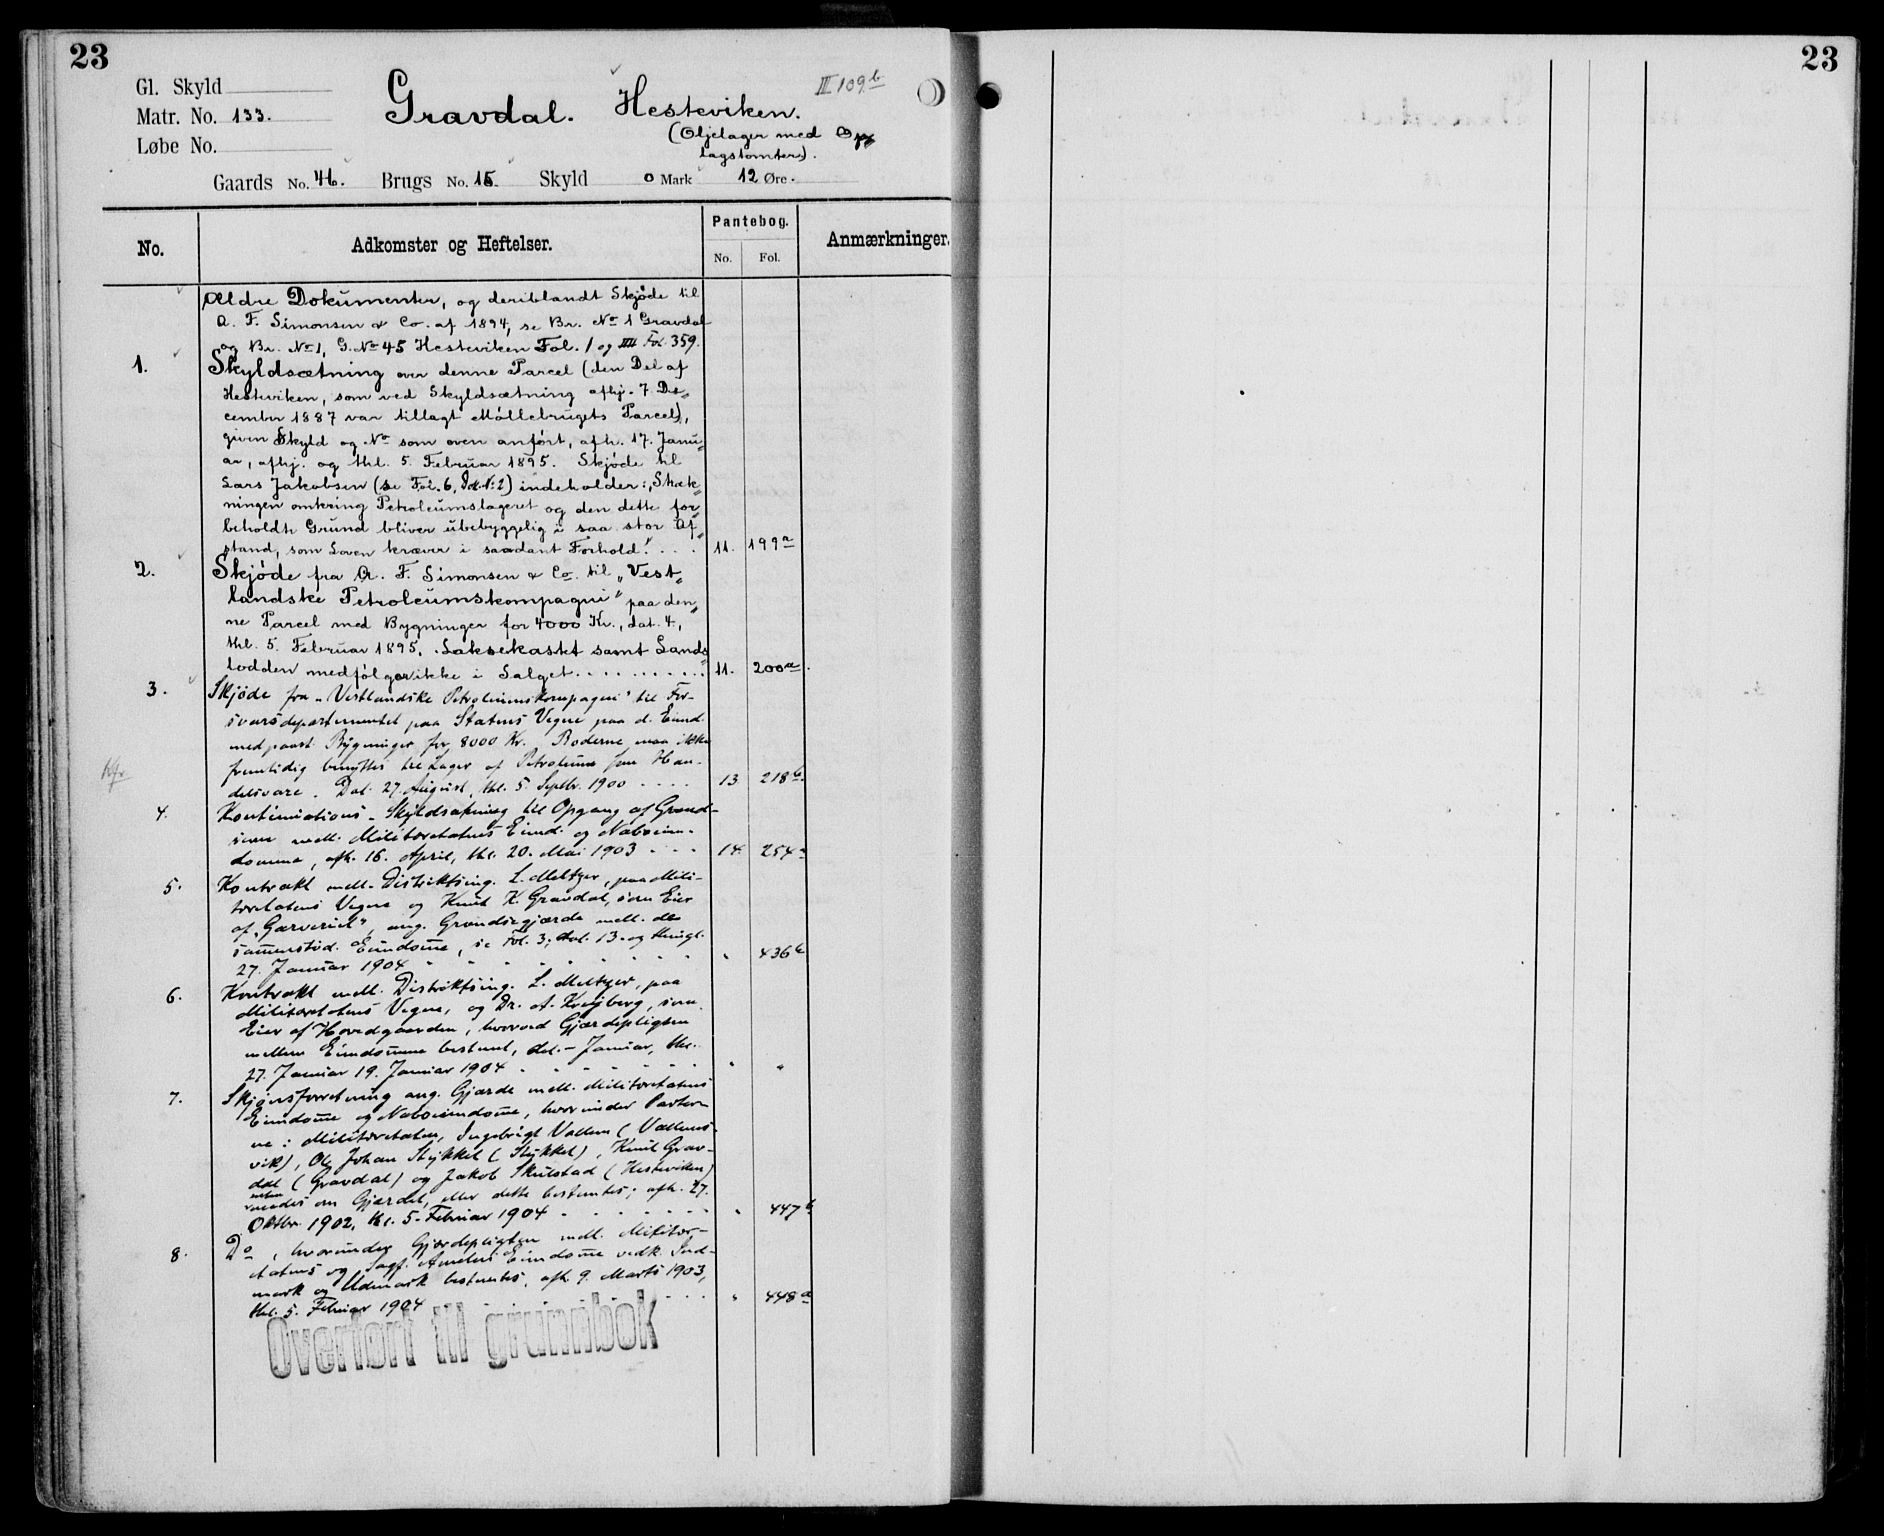 23
23
Gl. Skyld
Matr. No. 133.
Løbe No.
Gravdal. Hesteviken.
III 109 b
(Oljelager med
lagstomter).
Gaards No. 46. Brugs No. 15. Skyld 0 Mark 12 Øre.
No.
Adkomster og Heftelser.
Pantebog.
No. Fol.
Anmærkninger.
Ældre Dokumenter, og deriblandt Skjøde til
A. F. Simonsen & Co. af 1894, se Br. No 1 Gravdal
og Br. No 1, G. No 45 Hesteviken Fol. 1 og III Fol. 359.
1. Skyldsætning over denne Parcel (den Del af
Hesteviken, som ved Skyldsætning afhj. 7. De„
cember 1887 var tillagt Møllebrugets Parcel),
given Skyld og No som oven anført, afh. 17. Janu„
ar, afhj. og thl. 5. Februar 1895. Skjøde til
Lars Jakobsen (se Fol. 6, Dok. N: 2) indeholder: „Stræk„
ningen omkring Petroleumslageret og den dette for„
beholdte Grund bliver ubebyggelig i saa stor Af„
stand, som Loven kræver i saadant Forhold." . . . 11. 199 a
2. Skjøde fra A. F. Simonsen & Co. til „Vest„
landske Petroleumskompagni" paa den„
ne Parcel med Bygninger for 4000 Kr., dat. 4.,
thl. 5. Februar 1895. Laksekastet samt Lands„
lodden medfølger ikke i Salget . . . . . . . . . . 11. 200 a.
3. Skjøde fra „Vestlandske Petroleumskompagni" til For-
svarsdepartementet paa Statens Vegne paa d. Eiend.
med paast. Bygninger for 8000 Kr. Boderne maa ikke
fremtidig benyttes til Lager af Petroleum som Han-
delsvare. Dat. 27. August, thl. 5. Septbr. 1900 . . . . 13 218 b.
4. Kontinuations-Skyldsætning til Opgang af Grænd-
serne mell. Militæretatens Eiend. og Naboeien-
domme, afh. 16. April, thl. 20. Mai 1903 . . . 14. 254 a
5. Kontrakt mell. Distriktsing. L. Meltzer, paa Mili-
tæretatens Vegne og Knut K. Gravdal, som Eier
af „Garveriet", ang. Grændsegjærde mell. de
sammenstød. Eiendomme, se Fol. 3; dat. 13. og thingl.
27. Januar 1904 " 436 b
6. Kontrakt mell. Distriktsing. L. Meltzer, paa
Militæretatens Vegne, og Dr. A. Kreyberg, som
Eier af Hovedgaarden, hvorved Gjærdepligten
mellem Eiendomme bestemt, dat. – Januar, thl.
27. Januar 19. Januar 1904 " "
7. Skjønsforretning ang. Gjærde mell. Militæretatens
Eiendomme og Naboeiendomme, hvorunder Parter-
ne: Militæretaten, Ingebrigt Vallem (Vallems-
vik), Ole Johan Stykket (Stykket), Knut Grav-
dal (Gravdal) og Jakob Skulstad (Hesteviken)
enten
enedes om Gjærdet, eller dette bestemtes; afh. 27.
Oktbr. 1902, thl. 5. Februar 1904 " 447 b
8. Do, hvorunder Gjærdepligten mell. Militær-
etatens og Sagf. Amelns Eiendomme vedk. Ind-
mark og Udmark bestemtes, afh. 9. Marts 1903,
thl. 5. Februar 1904 " 448 a
Overført til grunnbok